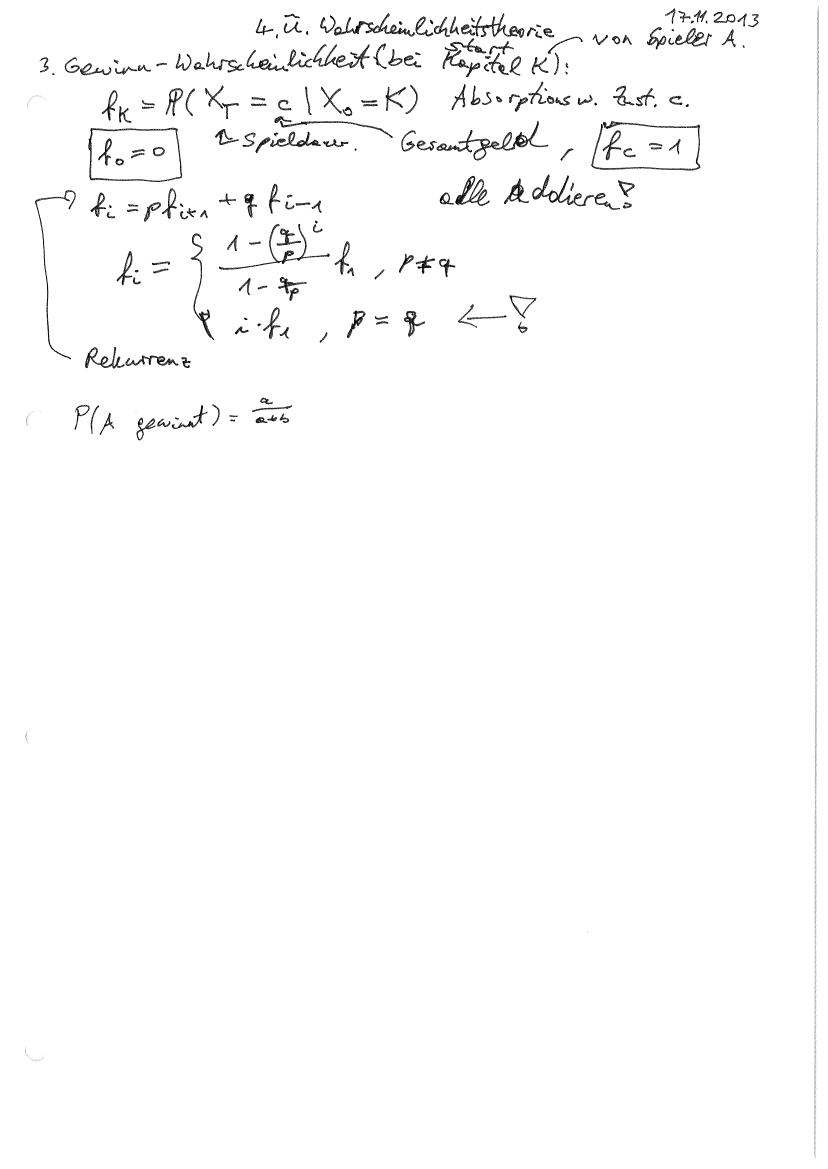 17.11.2013
4. Ü. Wahrscheinlichkeitstheorie
von Spieler A.
3. Gewinn-Wahrscheinlichkeit (bei Startkapital K):
f_K = P(X_T = c | X_0 = K) Absorptionsw. Zust. c.
f_0 = 0 Spieldauer. Gesamtgeld, f_c = 1
f_i = p f_{i+1} + q f_{i-1} alle Addieren!
f_i = { (1 - (q/p)^i) / (1 - q/p) f_1, p ≠ q
i · f_1, p = q ←
Rekurrenz
P(A gewinnt) = a/(a+b)